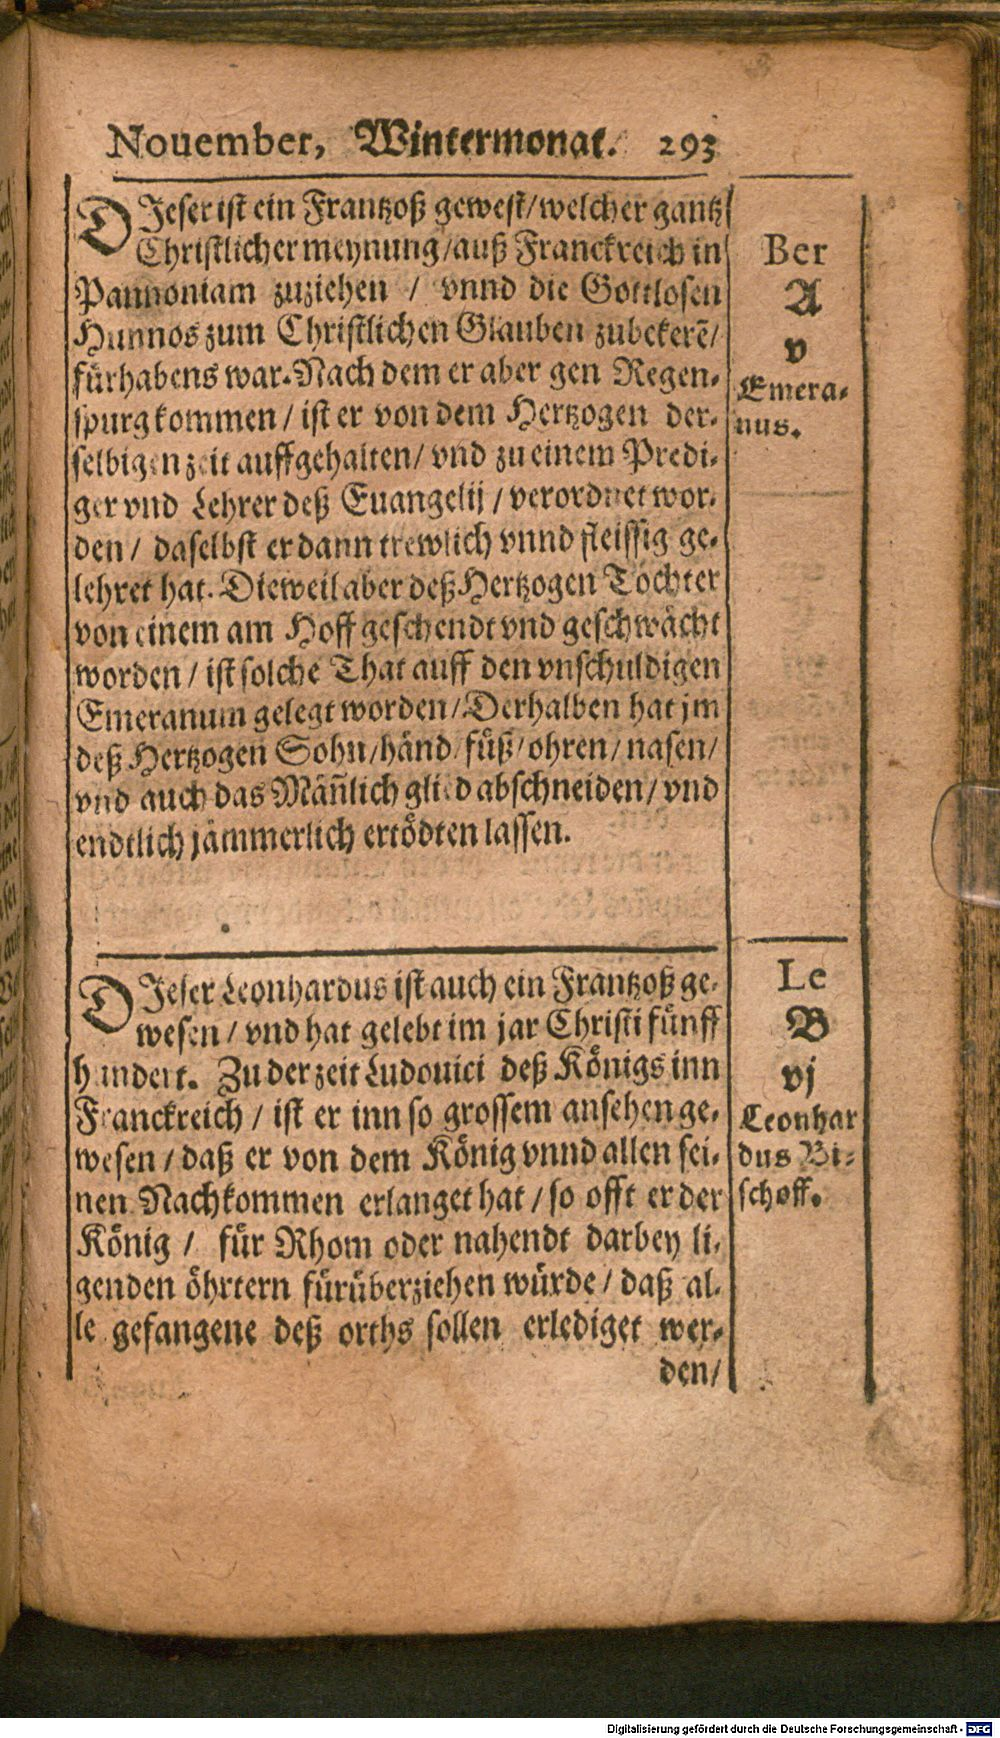 Nouember, Wintermonat. 293
DJeser ist ein Frantzoß gewest/welcher gantz
Christlicher meynung/auß Franckreich in
Pannoniam zuziehen / vnnd die Gottlosen
Hunnos zum Christlichen Glauben zubekerẽ/
fürhabens war. Nach dem er aber gen Regen-
spurg kommen/ ist er von dem Hertzogen der-
selbigen zeit auffgehalten/ vnd zu einem Predi-
ger vnd Lehrer deß Euangelij / verordnet wor-
den/ daselbst er dann trewlich vnnd fleissig ge-
lehret hat. Dieweil aber deß Hertzogen Tochter
von einem am Hoff geschendt vnd geschwächt
worden/ ist solche That auff den vnschuldigen
Emeranum gelegt worden/Derhalben hat jm
deß Hertzogen Sohn/händ/füß/ohren/nasen/
vnd auch das Mañlich glied abschneiden/vnd
endtlich jämmerlich ertödten lassen.
Ber
A
v
Emera-
nus.
DJeser Leonhardus ist auch ein Frantzoß ge-
wesen/ vnd hat gelebt im jar Christi fünff
hundert. Zu der zeit Ludouici deß Königs inn
Franckreich / ist er inn so grossem ansehen ge-
wesen/daß er von dem König vnnd allen sei-
nen Nachkommen erlanget hat/so offt er der
König / für Rhom oder nahendt darbey li-
genden öhrtern fürüberziehen würde/ daß al-
le gefangene deß orths sollen erlediget wer-
den/
Le
B
vj
Leonhar
dus Bi-
schoff.
Digitalisierung gefördert durch die Deutsche Forschungsgemeinschaft - DFG